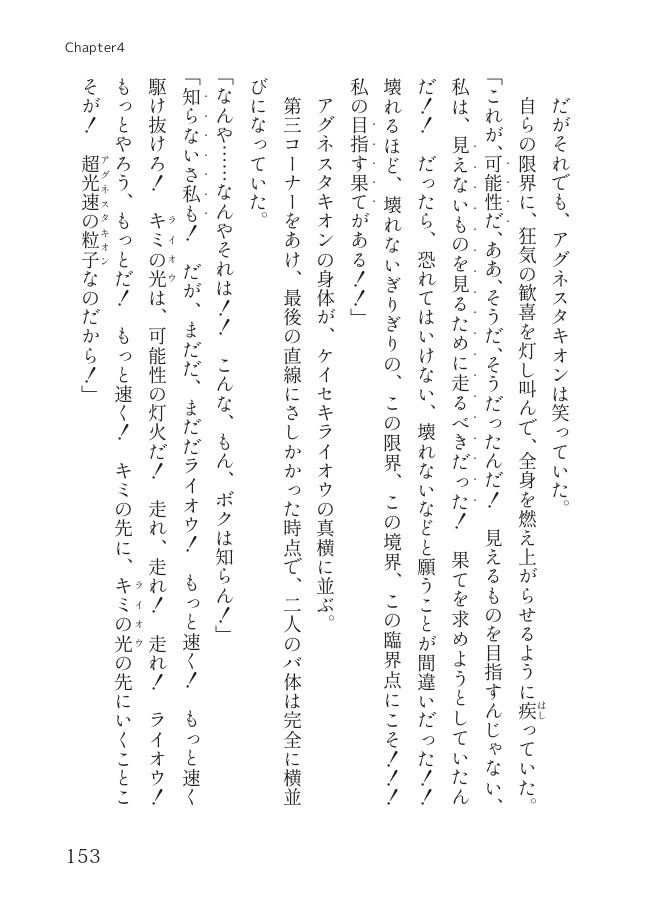 Chapter4
だがそれでも、アグネスタキオンは笑っていた。
自らの限界に、狂気の歓喜を灯し叫んで、全身を燃え上がらせるように疾っていた。
はし
「これが、可能性だ、ああ、そうだ、そうだったんだ！　見えるものを目指すんじゃない、
私は、見えないものを見るために走るべきだった！　果てを求めようとしていたん
だ！！　だったら、恐れてはいけない、壊れないなどと願うことが間違いだった！！
壊れるほど、壊れないぎりぎりの、この限界、この境界、この臨界点にこそ！！！
私の目指す果てがある！！」
アグネスタキオンの身体が、ケイセキライオウの真横に並ぶ。
第三コーナーをあけ、最後の直線にさしかかった時点で、二人のバ体は完全に横並
びになっていた。
「なんや……なんやそれは！！　こんな、もん、ボクは知らん！」
「知らないさ私も！　だが、まだだ、まだだライオウ！　もっと速く！　もっと速く
駆け抜けろ！　キミの光は、可能性の灯火だ！　走れ、走れ！　走れ！　ライオウ！
ライオウ
もっとやろう、もっとだ！　もっと速く！　キミの先に、キミの光の先にいくことこ
ライオウ
そが！　超光速の粒子なのだから！」
アグネスタキオン
153